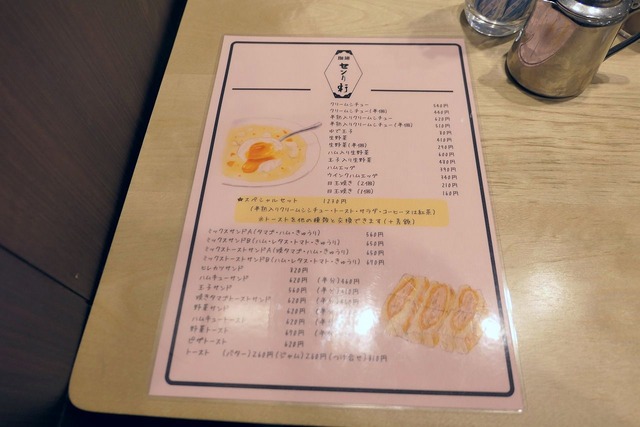 珈琲
センリ軒
クリームシチュー 580円
クリームシチュー(半個)
半熟入りクリームシチュー 620円
半熟入りクリームシチュー(半個)
ゆで玉子 80円
生野菜
生野菜(半個)
ハム入り生野菜 600円
玉子入り生野菜
ハムエッグ
ウインクハムエッグ
目玉焼き(2個) 210円
目玉焼き(1個) 160円
★スペシャルセット 1230円
(半熟入りクリームシチュー・トースト・サラダ・コーヒー又は紅茶)
※トーストを他の種類と交換できます(+差額)
ミックスサンドA(タマゴ・ハム・きゅうり) 560円
ミックスサンドB(ハム・レタス・トマト・きゅうり) 650円
ミックストーストサンドA(焼タマゴ・ハム・きゅうり) 650円
ミックストーストサンドB(ハム・レタス・トマト・きゅうり) 690円
ヒレカツサンド 820円
ハムキューサンド 620円 (半分)
玉子サンド 560円 (半分)
焼きタマゴトーストサンド 620円
野菜サンド 620円
ハムキュートースト 620円
野菜トースト 690円
ピザトースト 620円
トースト (バター)260円(ジャム)260円(つけ合せ)310円